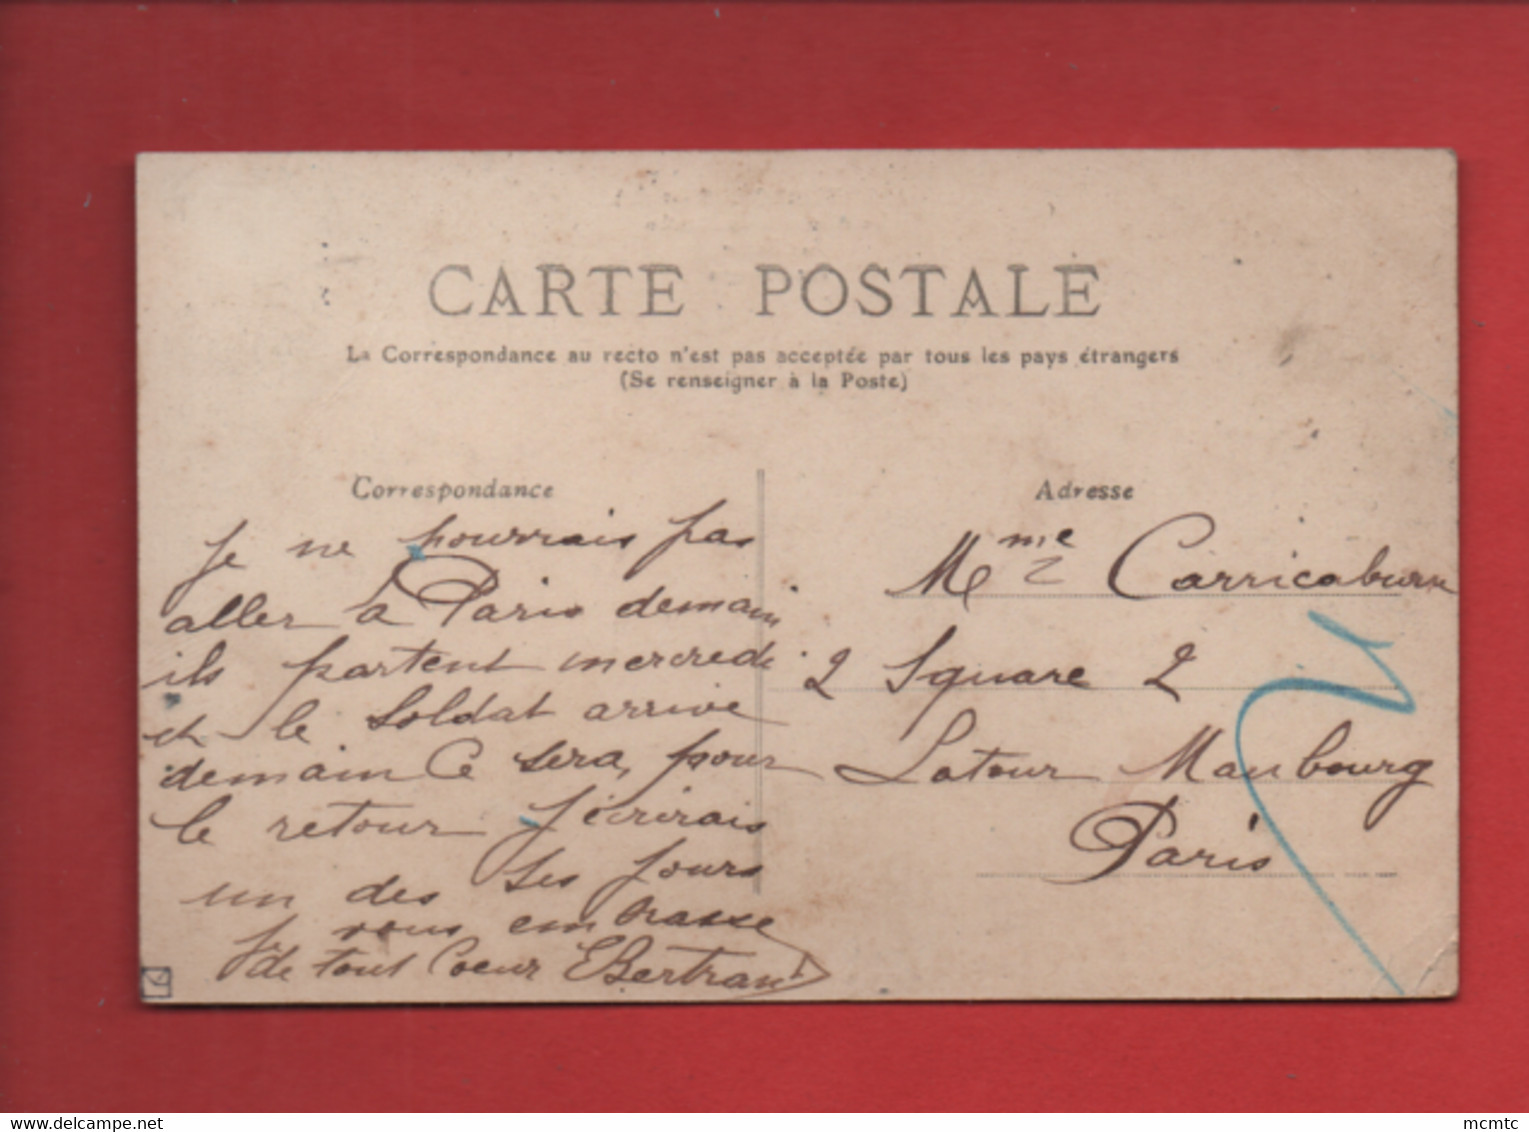 CARTE POSTALE
La Correspondance au recto n'est pas acceptée par tous les pays étrangers
(Se renseigner à la Poste)
Correspondance
Je ne pourrais pas
aller à Paris demain
ils partent mercredi
et le soldat arrive
demain Ce sera pour
le retour J'écrirais
un des ses jours
Je vous embrasse
de tout Coeur EBertrand
Adresse
Mme Carricaburu
2 Square 2
Latour Maubourg
Paris
delcampe.net
mcmtc